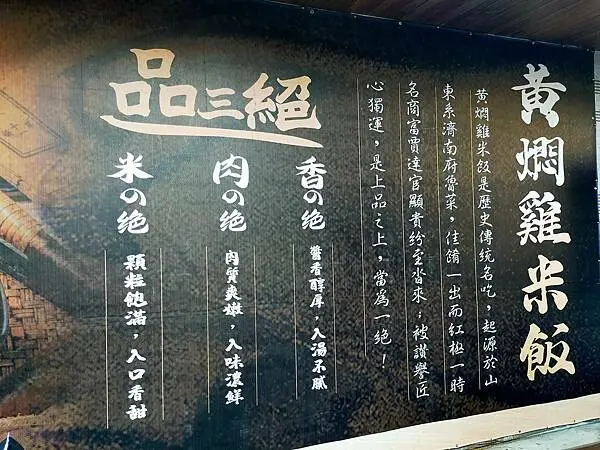 黄燜雞米飯
黄燜雞米飯是歷史傳統名吃，起源於山
東系濟南府魯菜，佳餚一出而紅極一時
名商富賈達官顯貴紛至沓來；被讚譽匠
心獨運，是上品之上，當為一絶！
品三絕
香の绝
醬香醇厚，入湯不膩
肉の绝
肉質爽嫩，入味濃鮮
米の绝
顆粒飽滿，入口香甜